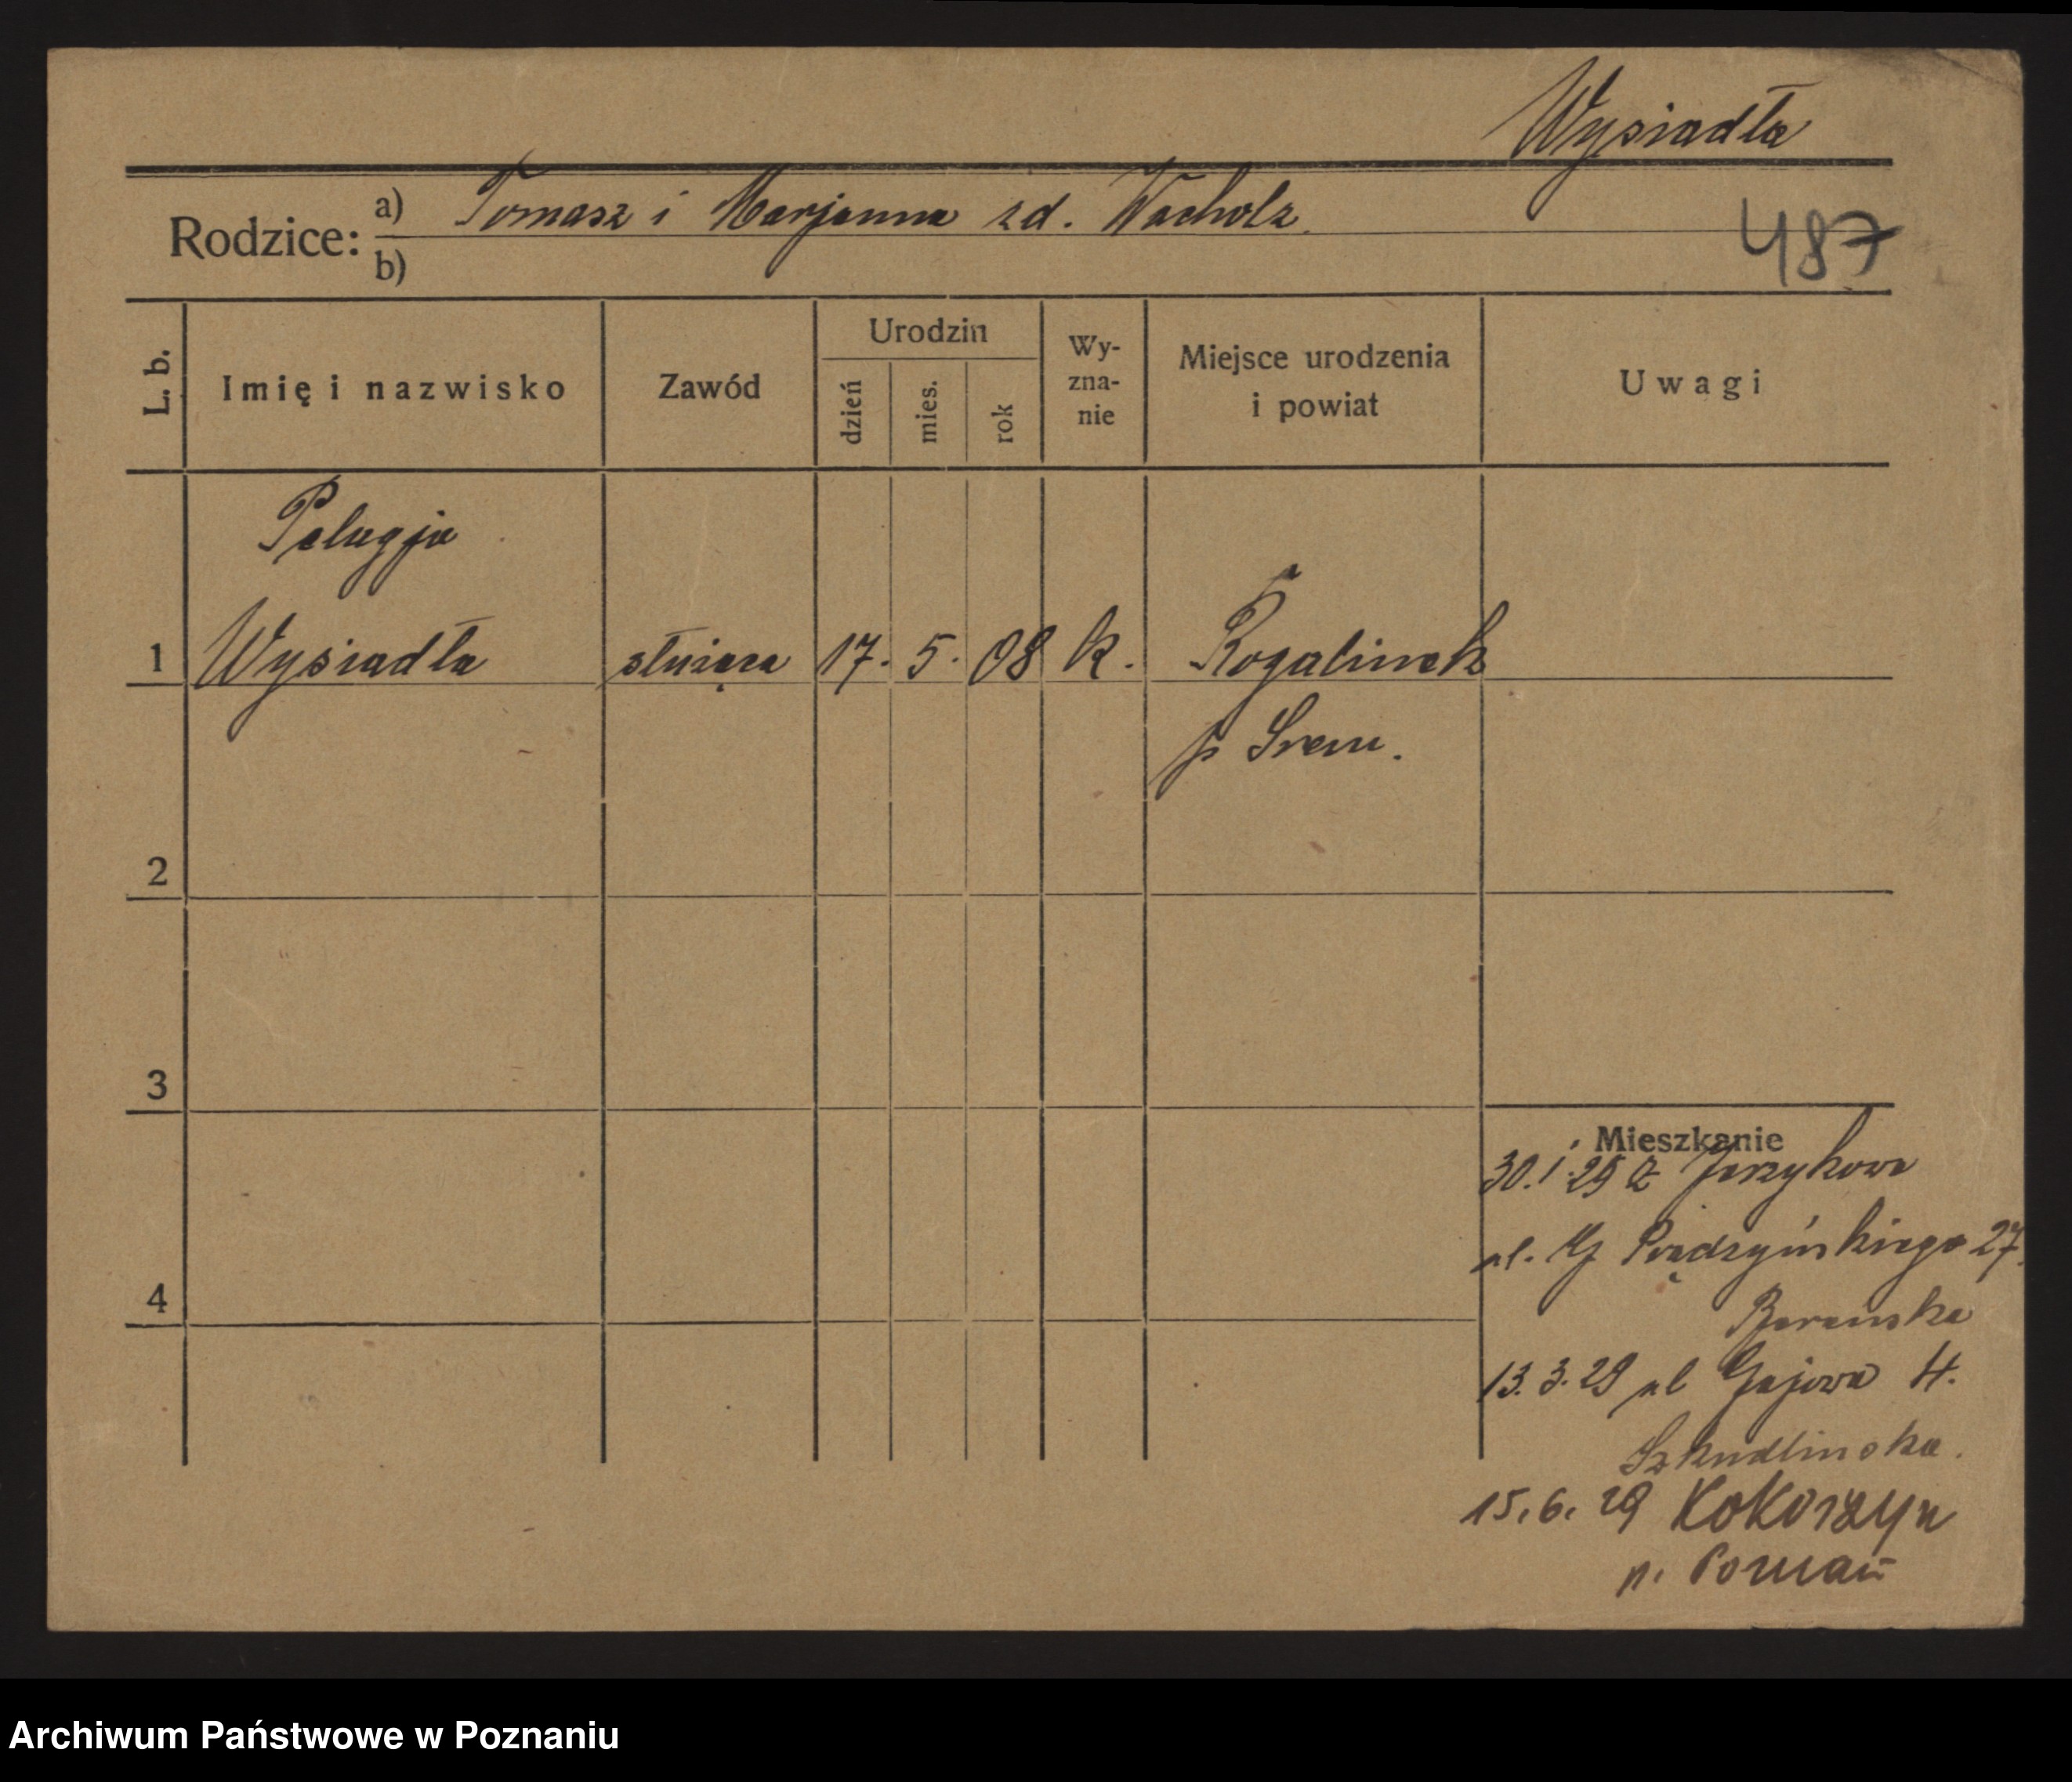 Wysiadła
Rodzice: a) Tomasz i Marjanna zd. Wacholz.
b)
487
L. b.
Imię i nazwisko
Zawód
Urodzin
dzień
mies.
rok
Wy-
zna-
nie
Miejsce urodzenia
i powiat
Uwagi
Pelagja
1 Wysiadła służąca 17. 5. 08 k. Rogalinek
p Srem.
2
3
4
Mieszkanie
30.1.29 z Jerzykowa
ul. G Prądzyńskiego 27.
Barańska
13.3.29 ul Gajowa 4.
Szkudlinska.
15.6.29 Kokorzyn
p. Poznań
Archiwum Państwowe w Poznaniu